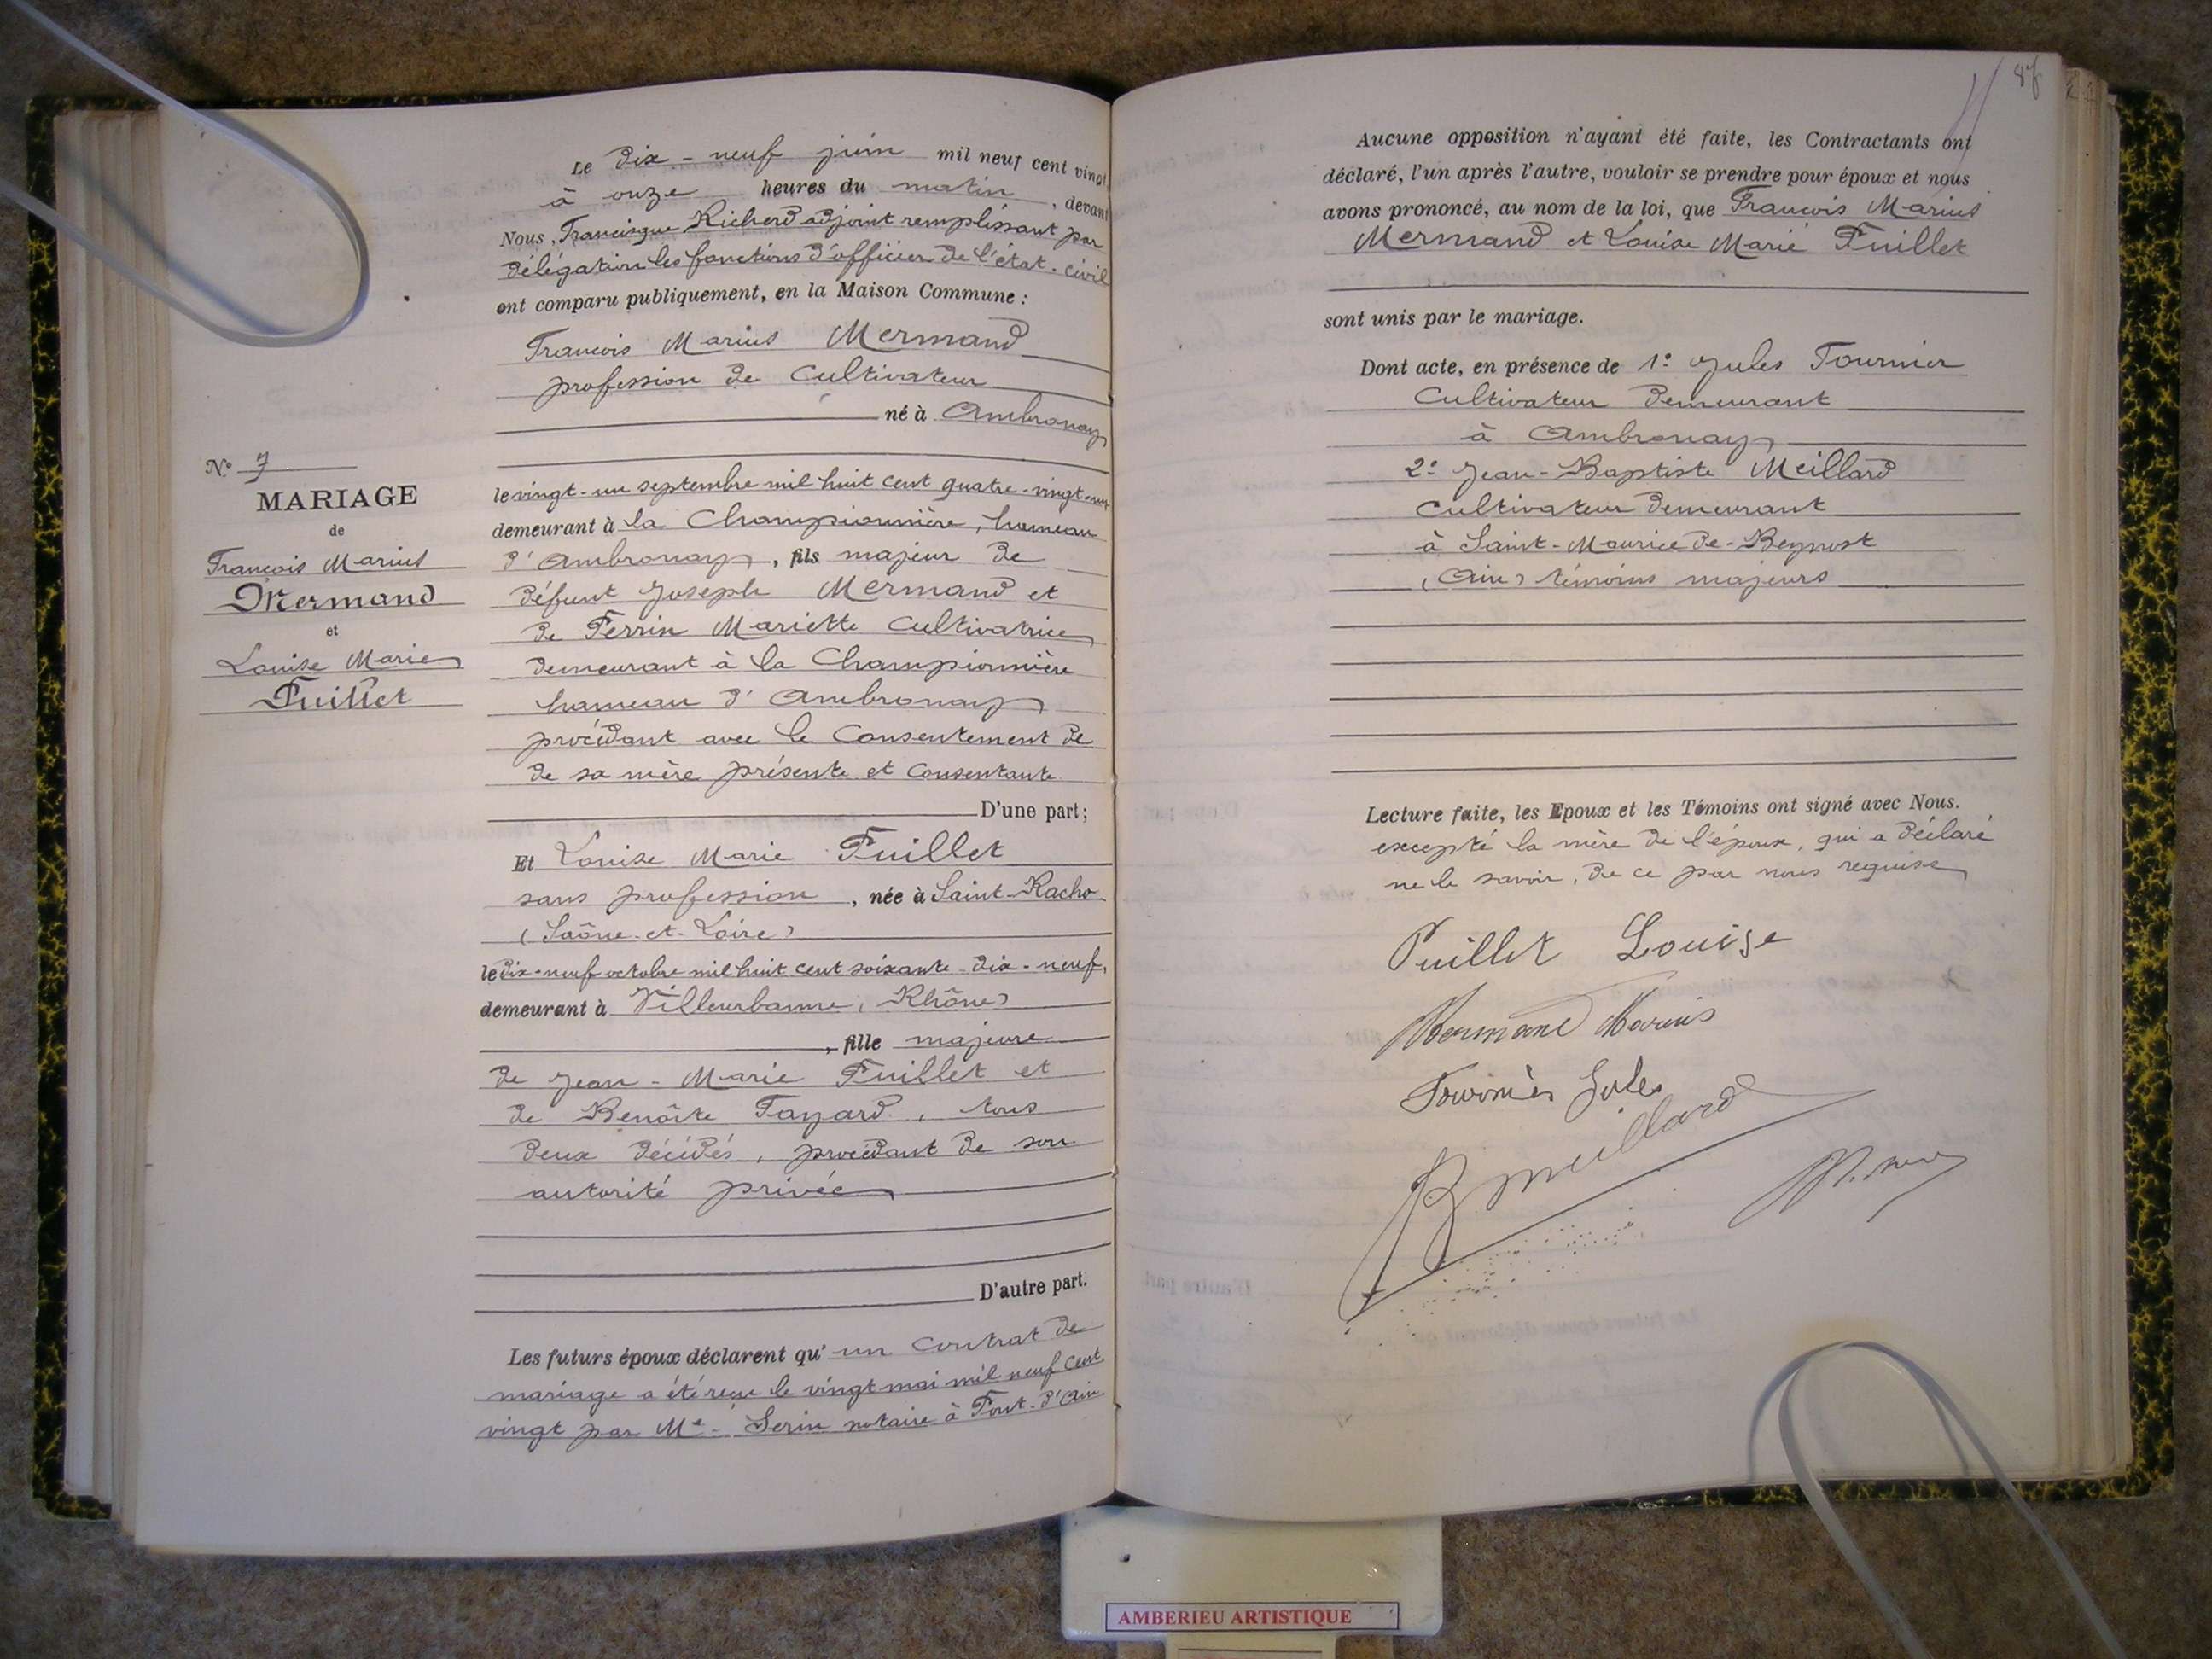 Le dix-neuf juin mil neuf cent vingt
à onze heures du matin, devant
Nous, Francisque Richerd adjoint remplissant par
délégation les fonctions d'officier de l'état-civil
ont comparu publiquement, en la Maison Commune :
François Marius Mermand
profession de Cultivateur
né à Ambronay
le vingt-un septembre mil huit cent quatre-vingt-un
demeurant à la Championnière, hameau
d'Ambronay, fils majeur de
défunt Joseph Mermand et
de Perrin Mariette Cultivatrice
demeurant à la Championnière
hameau d'Ambronay
procédant avec le Consentement de
de sa mère présente et Consentante
D'une part;
Et Louise Marie Puillet
sans profession, née à Saint-Racho
(Saône-et-Loire)
le dix-neuf octobre mil huit cent soixante-dix-neuf,
demeurant à Villeurbanne (Rhône)
, fille majeure
de Jean-Marie Puillet et
de Benoîte Fayard, tous
deux décédés, procédant de son
autorité privée
D'autre part.
Les futurs époux déclarent qu'un Contrat de
mariage a été reçu le vingt mai mil neuf cent
vingt par Me Serin notaire à Pont-d'Ain
N° 7
MARIAGE
de
François Marius
Mermand
et
Louise Marie
Puillet
87
Aucune opposition n'ayant été faite, les Contractants ont
déclaré, l'un après l'autre, vouloir se prendre pour époux et nous
avons prononcé, au nom de la loi, que François Marius
Mermand et Louise Marie Puillet
sont unis par le mariage.
Dont acte, en présence de 1° Jules Fournier
Cultivateur demeurant
à Ambronay
2° Jean-Baptiste Meillard
Cultivateur demeurant
à Saint-Maurice-de-Beynost
(Ain) témoins majeurs
Lecture faite, les Epoux et les Témoins ont signé avec Nous.
excepté la mère de l'époux, qui a déclaré
ne le savoir, de ce par nous requise
Puillet Louise
Mermand Marius
Fournier Jules
B meillard
AMBERIEU ARTISTIQUE